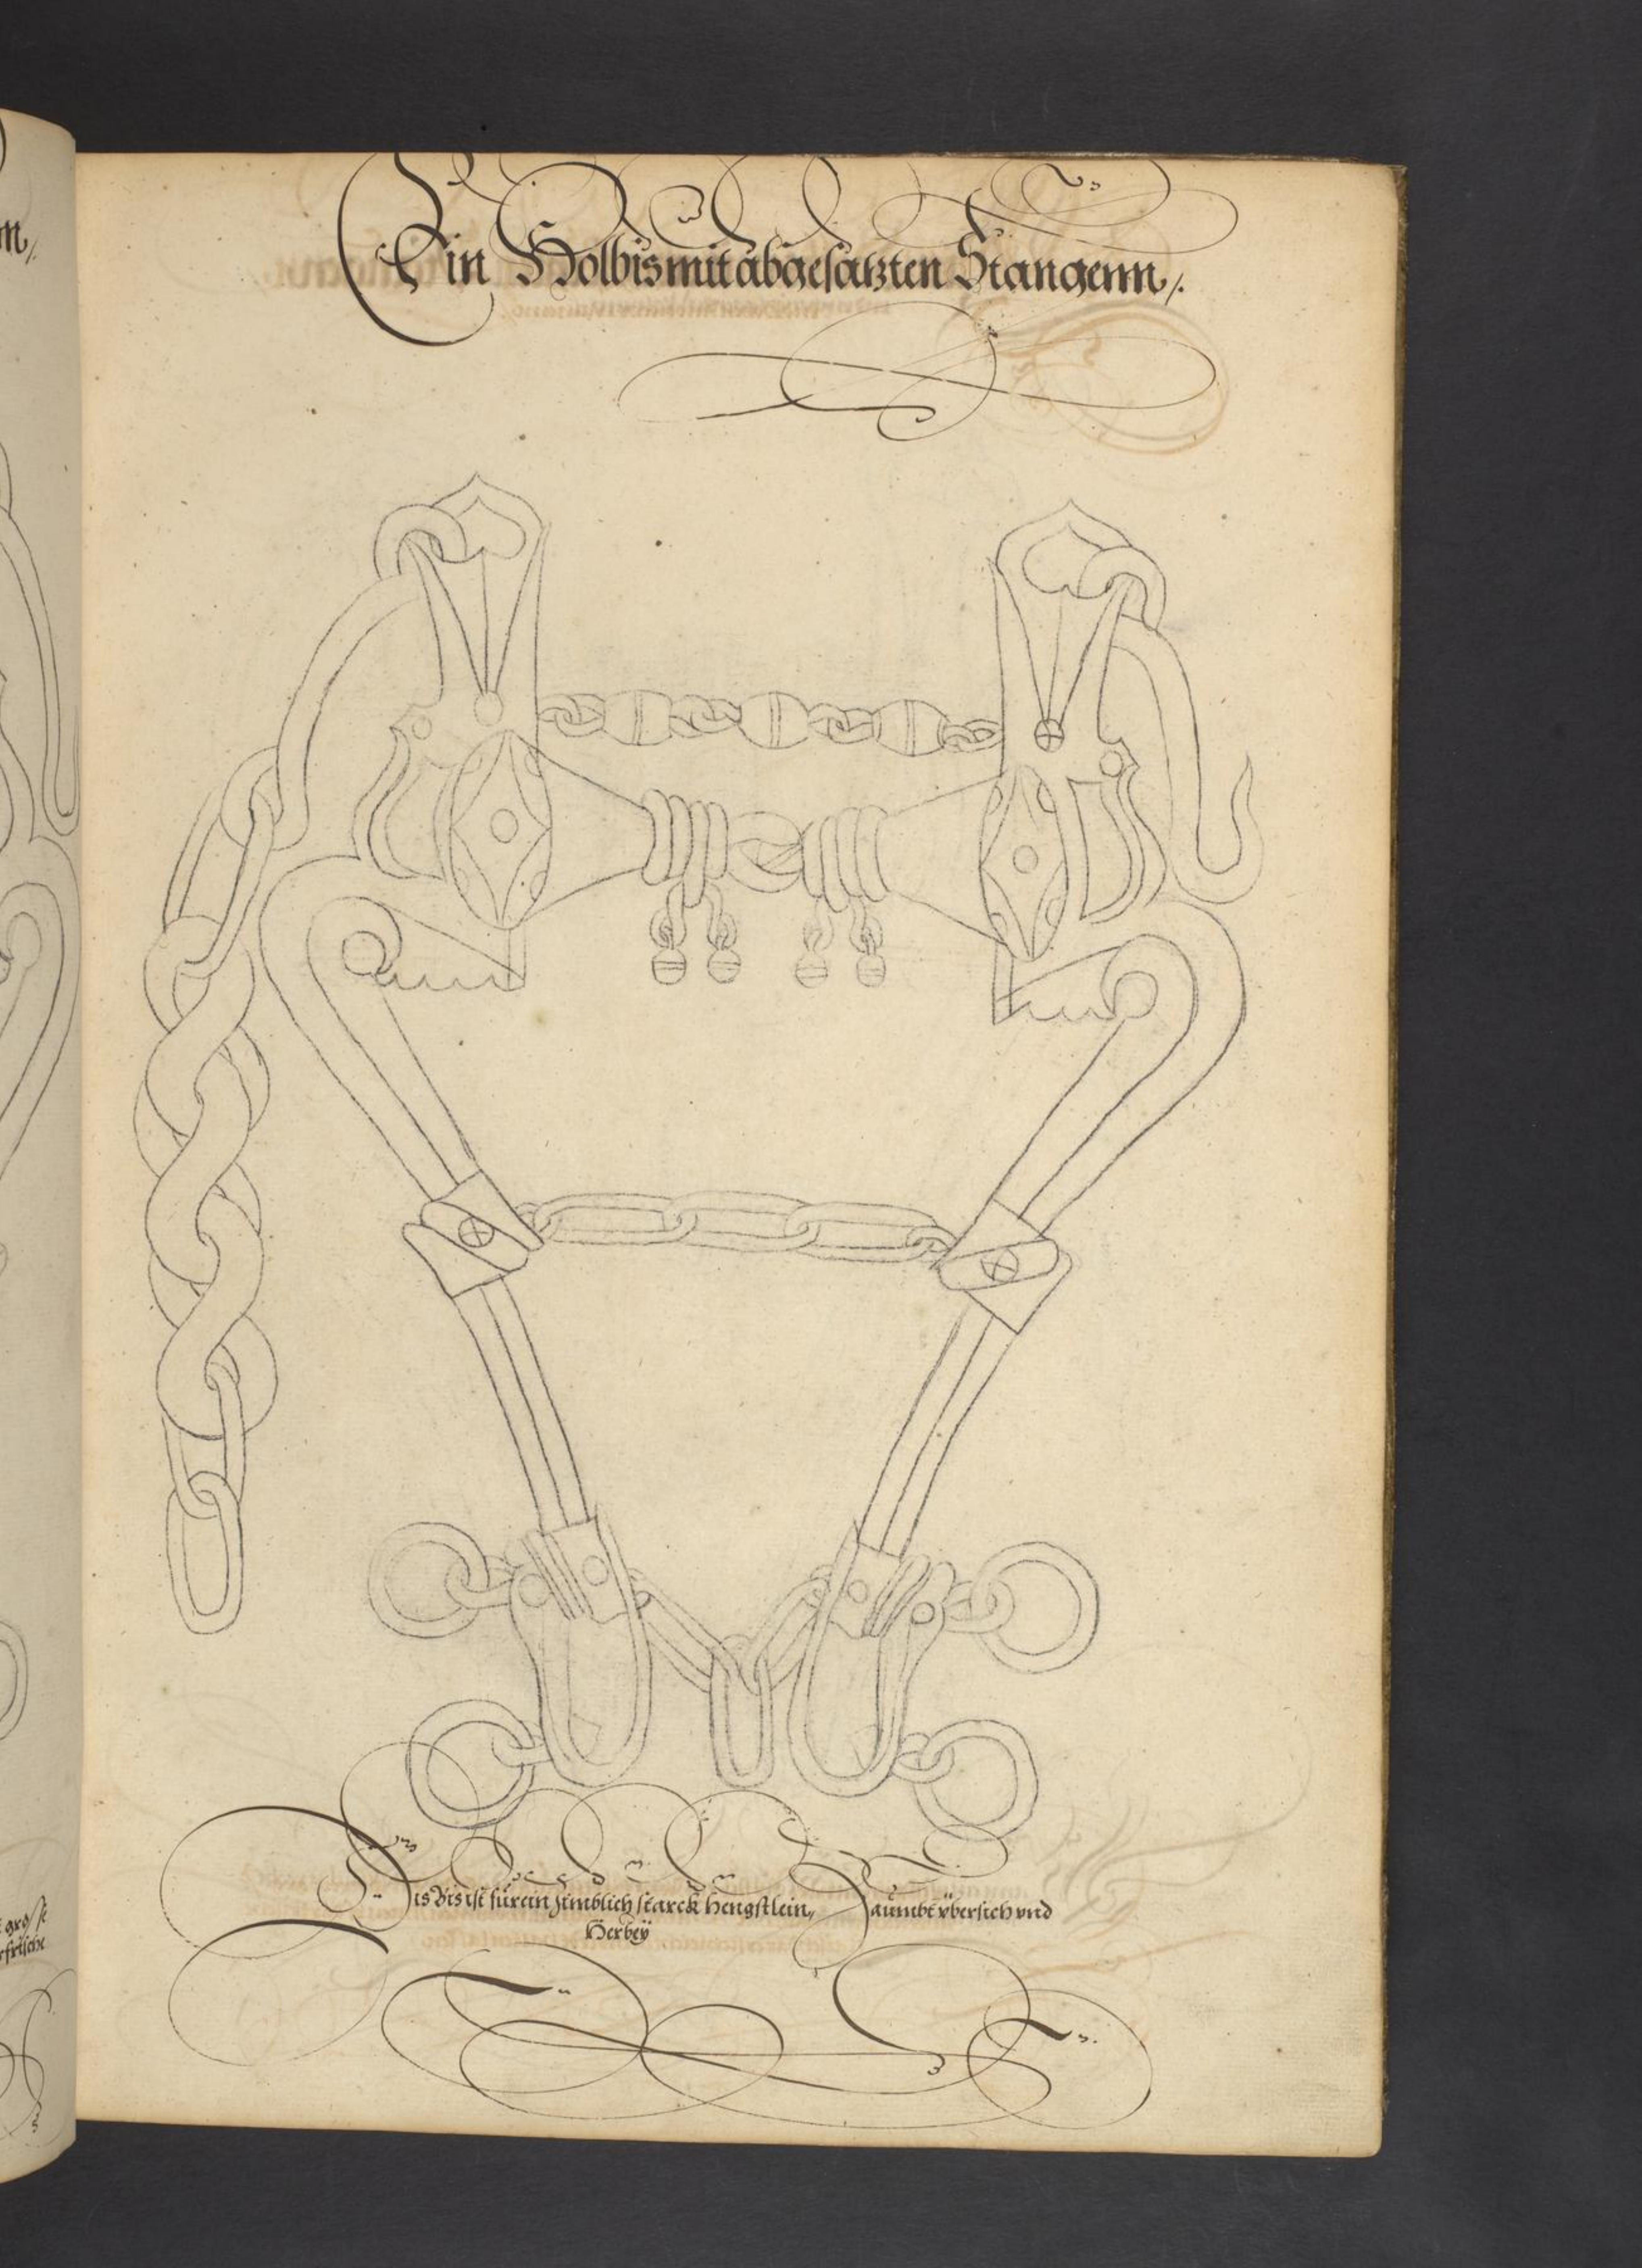 Ein Holbis mit abgesatzten Stangenn/.
Dis Bis ist für ein zimblich starck hengstlein, Zaumbt übersich vnd
Herbeÿ